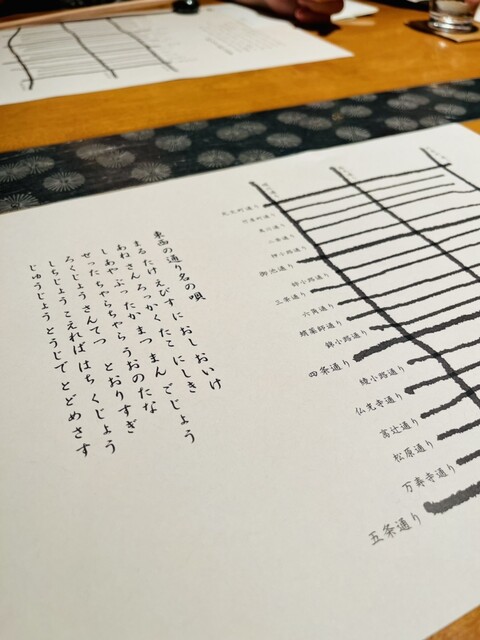 東西の通り名の唄
まる たけ えびすに おし おいけ
あねさん ろっかく たこ にしき
しあやぶったか まつ まん ごじょう
せったちゃらちゃら うおのたな
ろくじょう さんてつ とおりすぎ
しちじょう こえれば はちくじょう
じゅうじょう とうじで とどめさす
丸太町通り
竹屋町通り
夷川通り
二条通り
押小路通り
御池通り
姉小路通り
三条通り
六角通り
蛸薬師通り
錦小路通り
四条通り
綾小路通り
仏光寺通り
高辻通り
松原通り
万寿寺通り
五条通り